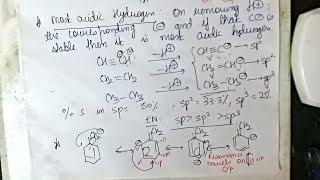 * Most acidic Hydrogen: On removing H⊕:
the corresponding C⊖ and if that C⊖ is
stable then it is most acidic hydrogen
CH≡CH -H⊕ CH≡C⊖ → sp
CH2=CH2 -H⊕ CH2=CH⊖ → sp²
CH3-CH3 -H⊕ CH3-CH2⊖ → sp³
% s in sp = 50% sp² = 33.3%, sp³ = 25%
EN: sp > sp² > sp³
CH2
Resonance
travels only in
o/p